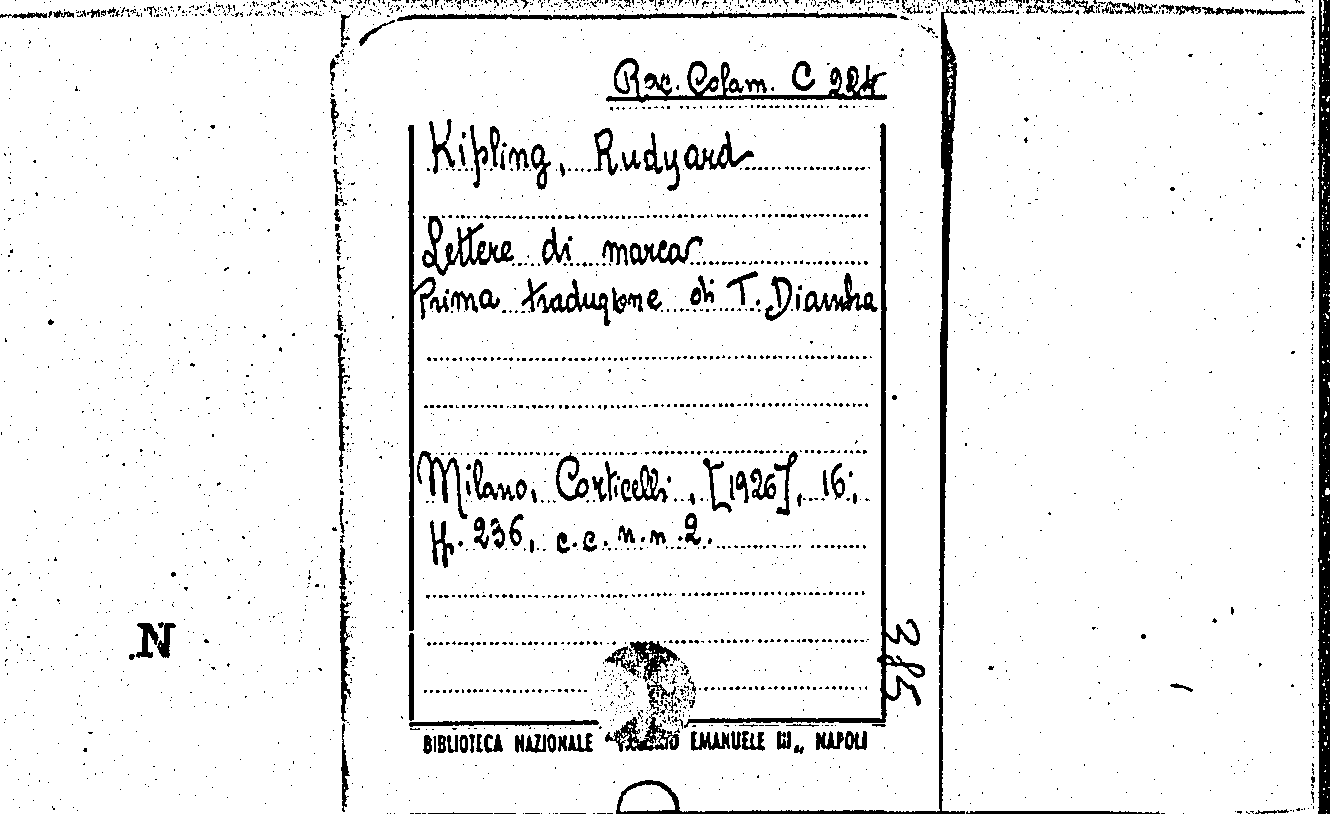 Rac. Colam. C 224
Kipling, Rudyard
Lettere di marca
Prima traduzione di T. Diambra
Milano, Corticelli, [1926], 16°,
pp. 236, c.c. n.n. 2.
385
N
BIBLIOTECA NAZIONALE EMANUELE III„ NAPOLI